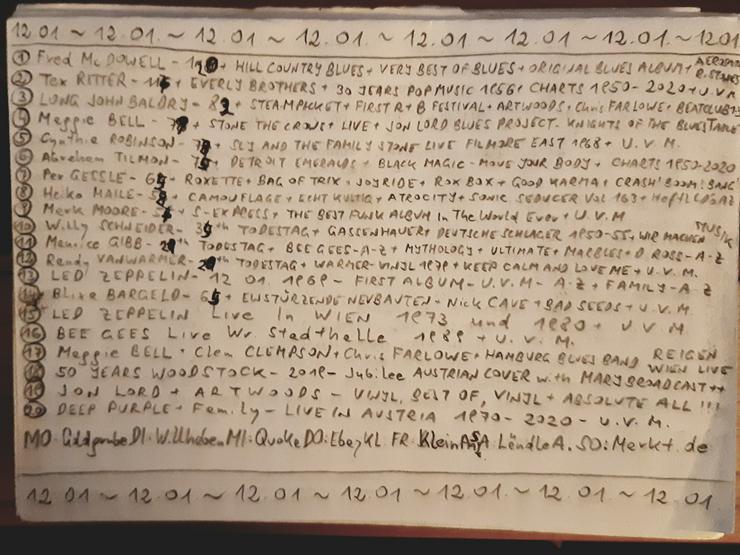 12.01 ~ 12.01 ~ 12.01. ~ 12.01. ~ 12.01. ~ 12.01. ~ 12.01. ~ 12.01
① Fred McDOWELL - + HILL COUNTRY BLUES + VERY BEST OF BLUES + ORIGINAL BLUES ALBUM +
② Tex RITTER - + EVERLY BROTHERS + 30 YEARS POP MUSIC 1956 + CHARTS 1950-2020 + U.V.M
③ LONG JOHN BALDRY - 82 + STEAMPACKET + FIRST R + B FESTIVAL + ARTWOODS + Chris FARLOWE + BEATCLUB
④ Maggie BELL - + STONE THE CROWS + LIVE + JON LORD BLUES PROJECT - KNIGHTS OF THE BLUES TABLE
⑤ Cynthia ROBINSON - + SLY AND THE FAMILY STONE LIVE FILMORE EAST 1968 + U.V.M.
⑥ Abraham TILMON - + DETROIT EMERALDS + BLACK MAGIC - MOVE YOUR BODY + CHARTS 1950-2020
⑦ Per GESSLE - + ROXETTE + BAG OF TRIX + JOYRIDE + ROX BOX + GOOD KARMA + CRASH! BOOM! BANG!
⑧ Heiko MAILE - + CAMOUFLAGE + ECHT KULTIG + ATROCITY + SONIC SEDUCER Vol 163 +
⑨ Mark MOORE - + S-EXPRESS + THE BEST FUNK ALBUM In The World Ever + U.V.M
⑩ Willy SCHNEIDER - TODESTAG + GASSENHAUER + DEUTSCHE SCHLAGER 1950-55 + WIR MACHEN MUSIK
⑪ Maurice GIBB - TODESTAG + BEE GEES - A-Z + MYTHOLOGY + ULTIMATE + MARBLES + D. ROSS - A-Z
⑫ Randy VANWARMER - TODESTAG + WARMER - VINYL 1979 + KEEP CALM AND LOVE ME + U.V.M.
⑬ LED ZEPPELIN - 12 01. 1969 - FIRST ALBUM - U.V.M - A-Z + FAMILY - A-Z
⑭ Blixa BARGELD - + EINSTÜRZENDE NEUBAUTEN - Nick CAVE + BAD SEEDS + U.V.M.
⑮ LED ZEPPELIN Live In WIEN 1973 und 1980 + U.V.M.
⑯ BEE GEES Live Wr. Stadthalle + U.V.M.
⑰ Maggie BELL + Clem CLEMPSON + Chris FARLOWE + HAMBURG BLUES BAND REIGEN WIEN LIVE
⑱ 50 YEARS WOODSTOCK - 2019 - Jubilee AUSTRIAN COVER with MARY BROADCAST ++
⑲ JON LORD + ARTWOODS - VINYL, BEST OF, VINYL + ABSOLUTE ALL !!!
⑳ DEEP PURPLE + Family - LIVE IN AUSTRIA 1970 - 2020 - U.V.M.
MO: DI: Willhaben MI: Quoka DO: Ebay KL FR: SA: LändleA. SO: Markt.de
12.01 ~ 12.01 ~ 12.01 ~ 12.01 ~ 12.01 ~ 12.01 ~ 12.01